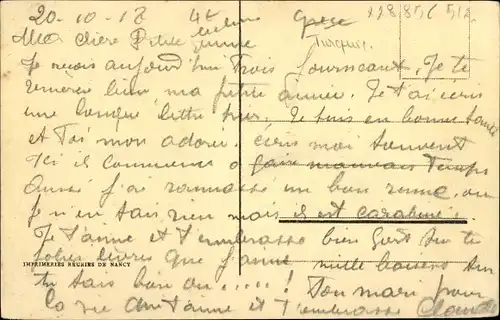 20-10-17 4h Grèce 128 856 518
Ma chère Petite femme Turquie
Je reçois aujourd'hui Trois Journeaux. Je te
remercie bien ma petite aimée. Je t'ai écris
une longue lettre hier. Je suis en bonne santé
et Toi mon adorée. écris moi souvent
Ici il commence a faire mauvais Temps
Aussi j'ai ramassé un bon rume, ou
je n'en sais rien mais il est carabiné
Je t'aime et t'embrasse bien fort sur te
jolies lèvres que j'aime mille baisers sur
IMPRIMERIES RÉUNIES DE NANCY
tu sais bien ou .....! Ton mari pour
la vie qui t'aime et t'embrasse